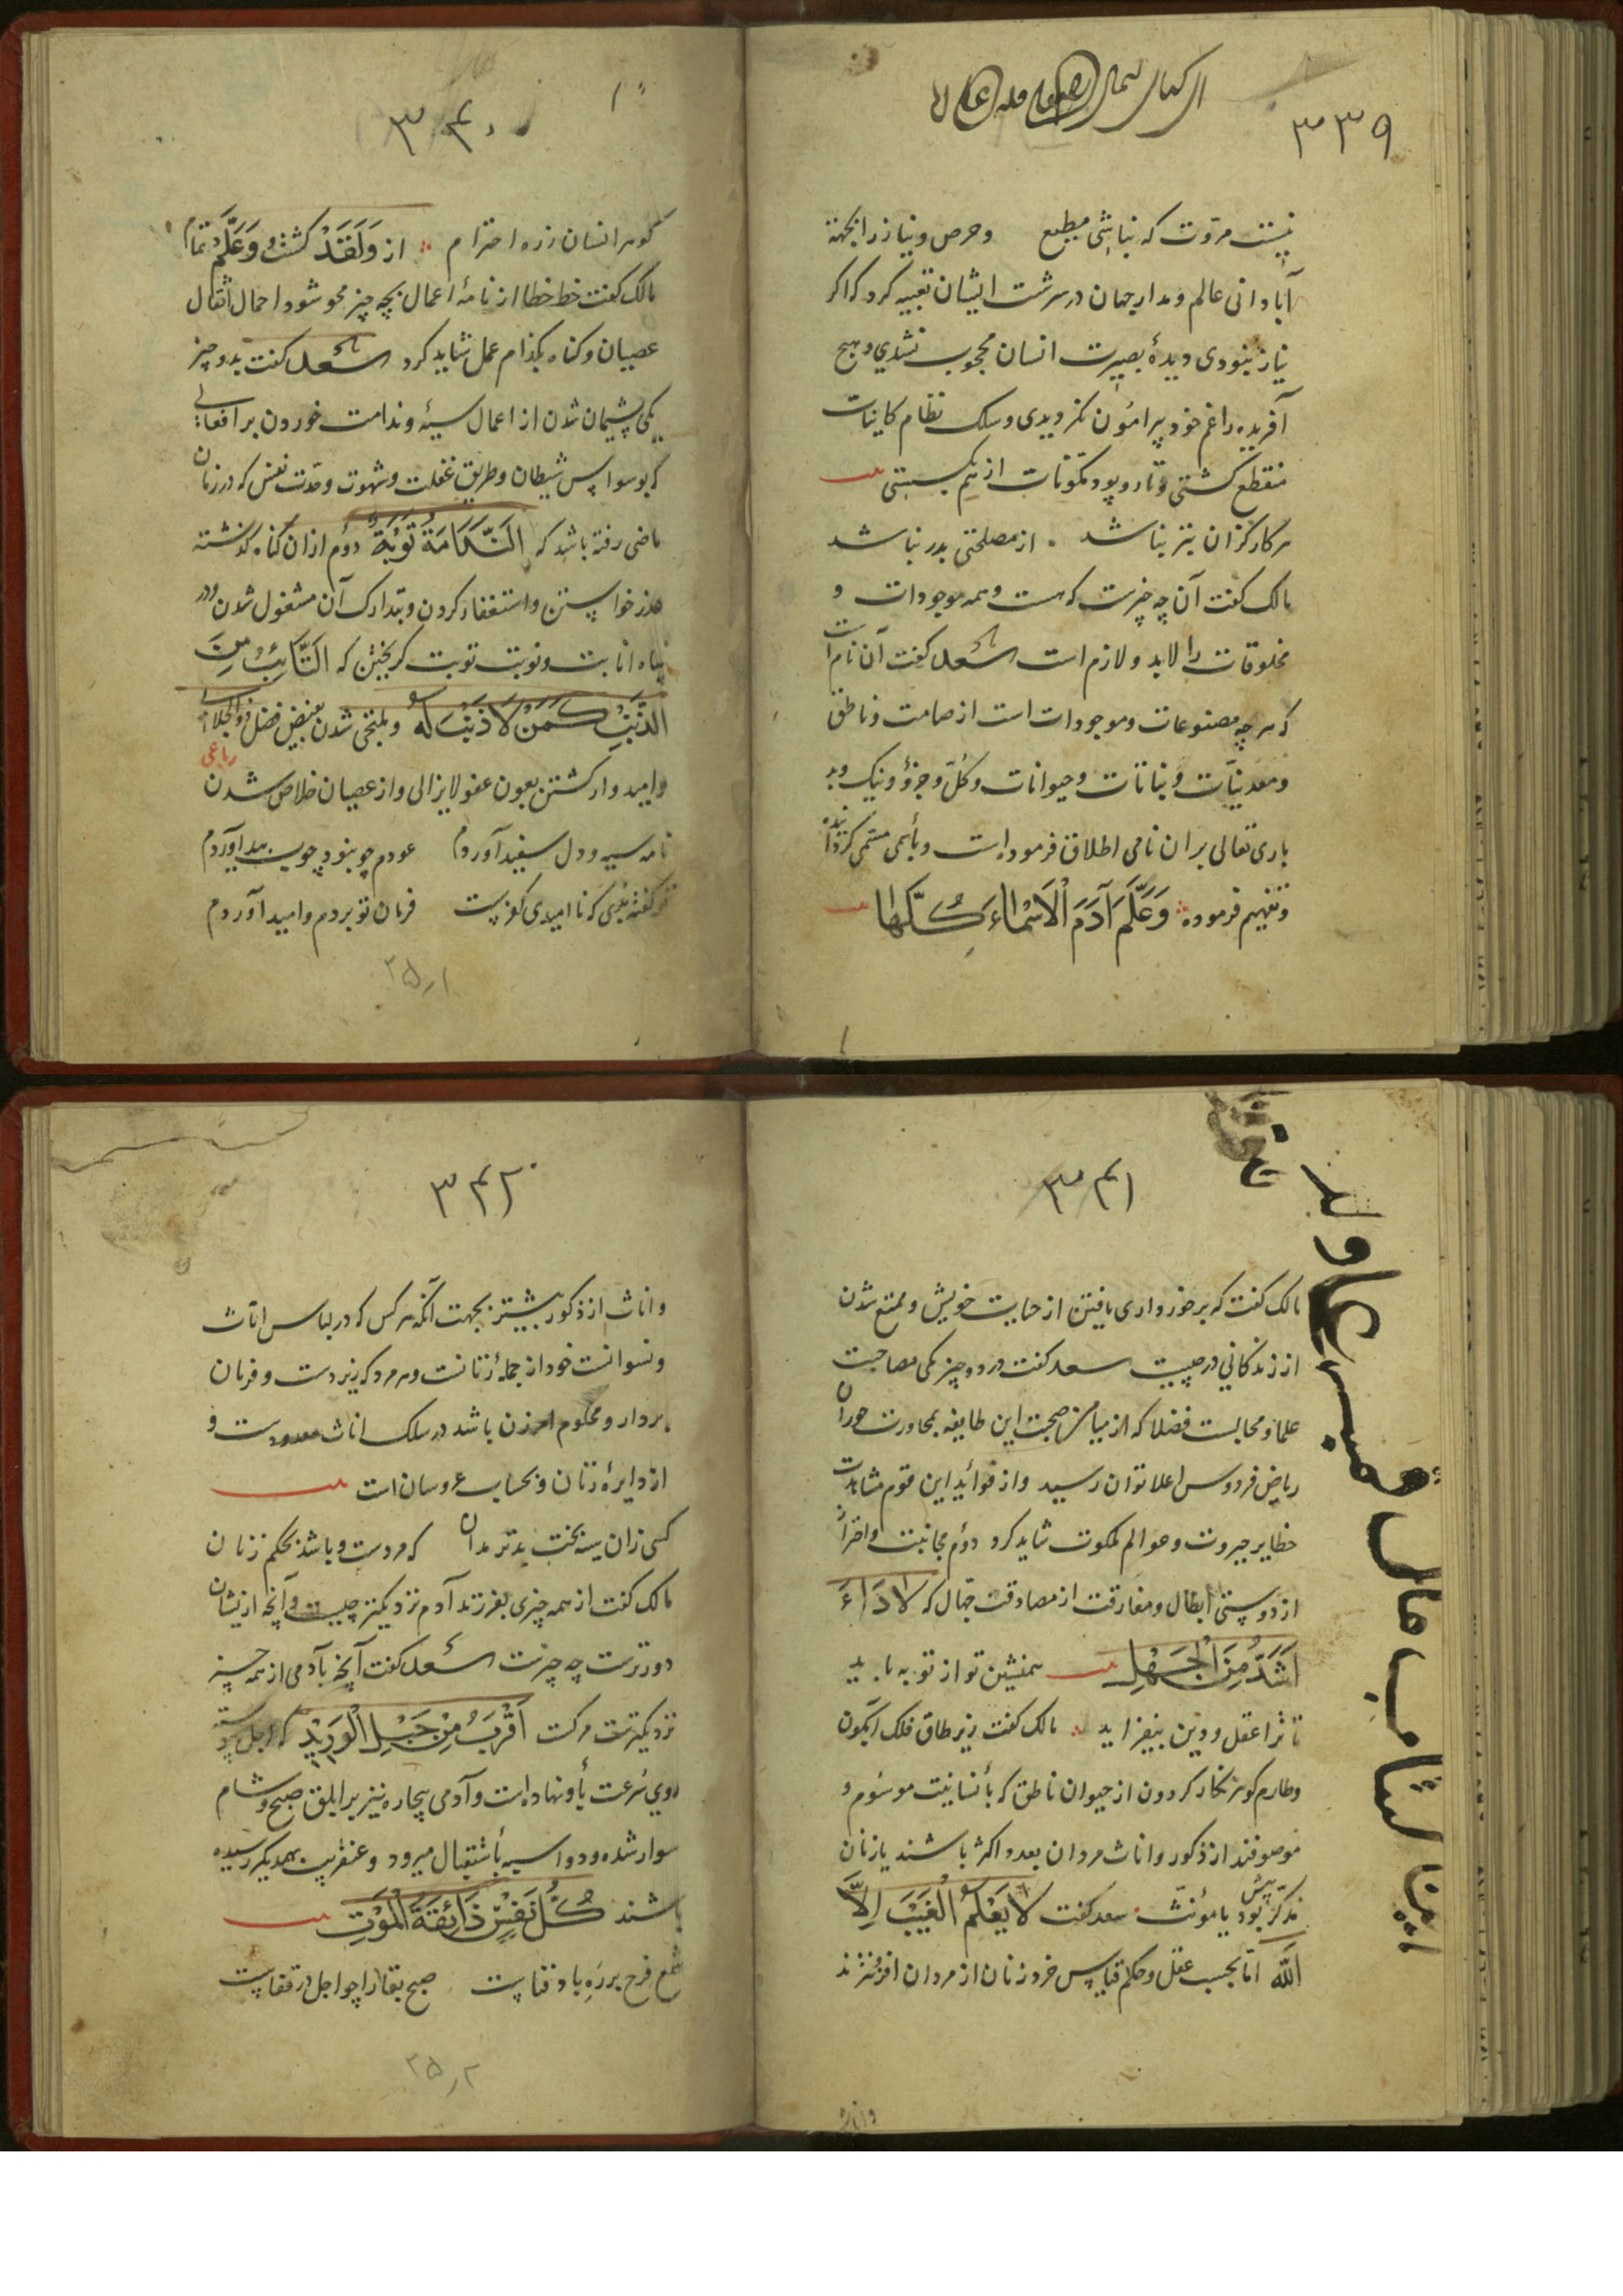 ۳۳۹
نیست مروّت که نباشی مطیع وحرص و نیاز را بجهة
آبادانی عالم ومدار جهان در سرشت ایشان تعبیه کرد که اکر
نیاز نبودی دیدهٔ بصیرت انسان محجوب نشدی وهیچ
آفریده را غم خود پیرامون نکردیدی وسلک نظام کاینات
منقطع کشتی وتار و پود مکوّنات از هم بکسستی
هر کار کزان بتر نباشد از مصلحتی بدر نباشد
مالک کفت آن چه چیزست که هست وهمه موجودات و
مخلوقات را لابد و لازم است سعد کفت آن نام است
که هر چه مصنوعات وموجودات است از صامت وناطق
ومعدنیّات ونباتات وحیوانات وکلّ وجزؤ ونیک وبد
باری تعالی بر ان نامی اطلاق فرموده است وبأسمی مسمّی کردانیده
وتفهیم فرموده وَعَلَّمَ آدَمَ الْاَسْمَاءَ كُلَّهَا
۳۴۰
کوهر انسان زره احترام از وَلَقَدْ کشت وَعَلَّمْ تمام
مالک کفت خط خطا از نامهٔ اعمال بچه چیز محو شود و احمال اثقال
عصیان وکناه بکدام عمل شاید کرد سعد کفت بدو چیز
یکی پشیمان شدن از اعمال سیئه وندامت خوردن بر افعالی
که بوسواس شیطان وطریق غفلت وشهوت ولذت نفس که در زمان
ماضی رفته باشد که اَلنَّدَامَةُ تَوْبَةٌ دوم ازان کناه کذشته
عذر خواستن واستغفار کردن وبتدارک آن مشغول شدن ودر
پناه انابت ونوبت توبت کریختن که اَلتَّائِبُ مِنَ
الذَّنْبِ كَمَنْ لَا ذَنْبَ لَهُ وملتجی شدن بفیض فضل ذو الجلالی
رباعی
وامیدوار کشتن بعون عفو لایزالی واز عصیان خلاص شدن
نامه سیه و دل سفید آوردم عودم چو نبود چوب بید آوردم
تو کفته بُدی که ناامیدی کفرست فرمان تو بردم وامید آوردم
۲۵ر۱
۳۴۱
مالک کفت که برخورداری یافتن از حیایت خویش وممتع شدن
از زندکانی در چیست سعد کفت در دو چیز یکی مصاحبت
علما ومجالست فضلا که از میامن صحبت این طایفه بمجاورت حوران
ریاض فردوس اعلا توان رسید واز فواید این قوم مشاهدت
حظایر جبروت وعوالم ملکوت شاید کرد دوم مجانبت واحتراز
از دوستی ابطال ومفارقت از مصادقت جهّال که لَا دَاءَ
اَشَدُّ مِنَ الْجَهْلِ همنشین تو از تو به باید
تا ترا عقل ودین بیفزاید مالک کفت زیر طاق فلک آبکون
وطارم کوهر نکار کردون از حیوان ناطق که بأنسانیت موسوم و
موصوفند از ذکور واناث مردان بعدد اکثر باشند یا زنان
مذکّر بیش بود یا مؤنّث سعد کفت لَا يَعْلَمُ الْغَيْبَ اِلَّا
اللّٰه امّا بحسب عقل وحکم قیاس خرد زنان از مردان افزونترند
۳۴۲
واناث از ذکور بیشتر بجهت آنکه هر کس که در لباس اناث
ونسوانست خود از جملهٔ زنانست وهر مرد که زیر دست وفرمان
بردار ومحکوم امر زن باشد در سلک اناث معدودست و
از دایرهٔ زنان وبحساب عروسان است
کسی زان سیه بخت بدتر مدان که مردست وباشد بحکم زنان
مالک کفت از همه چیزی بفرزند آدم نزدیکتر چیست وآنچه ازیشان
دورترست چه چیزست سعد کفت آنچه بآدمی از همه چیز
نزدیکترست مرکست اَقْرَبُ مِنْ حَبْلِ الْوَرِيْدِ که اجل پیوسته
روی سُرعت بأو نهاده است وآدمی بیچاره نیز بر ابلق صبح وشام
سوار شده ودو اسبه بأستقبال میرود وعنقریب بهمدیکر رسیده
باشند كُلُّ نَفْسٍ ذَائِقَةُ الْمَوْتِ
شمع فرح بر ره باد فناست صبح بقا را چو اجل در قفاست
۲۵ر۲